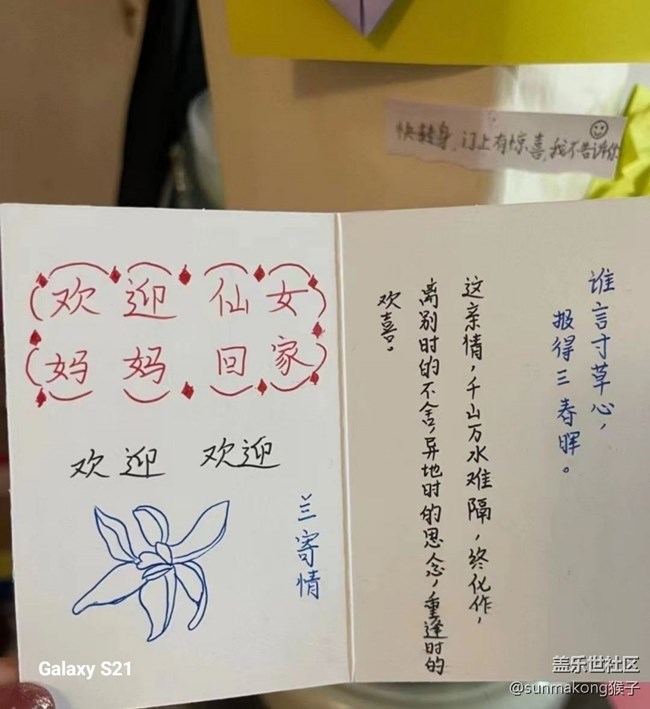 快转身,门上有惊喜,我不告诉你
欢迎仙女
妈妈回家
欢迎 欢迎
兰寄情
谁言寸草心,
报得三春晖。
这亲情,千山万水难隔,终化作,
离别时的不舍,异地时的思念,重逢时的
欢喜。
Galaxy S21
盖乐世社区
@sunmakong猴子